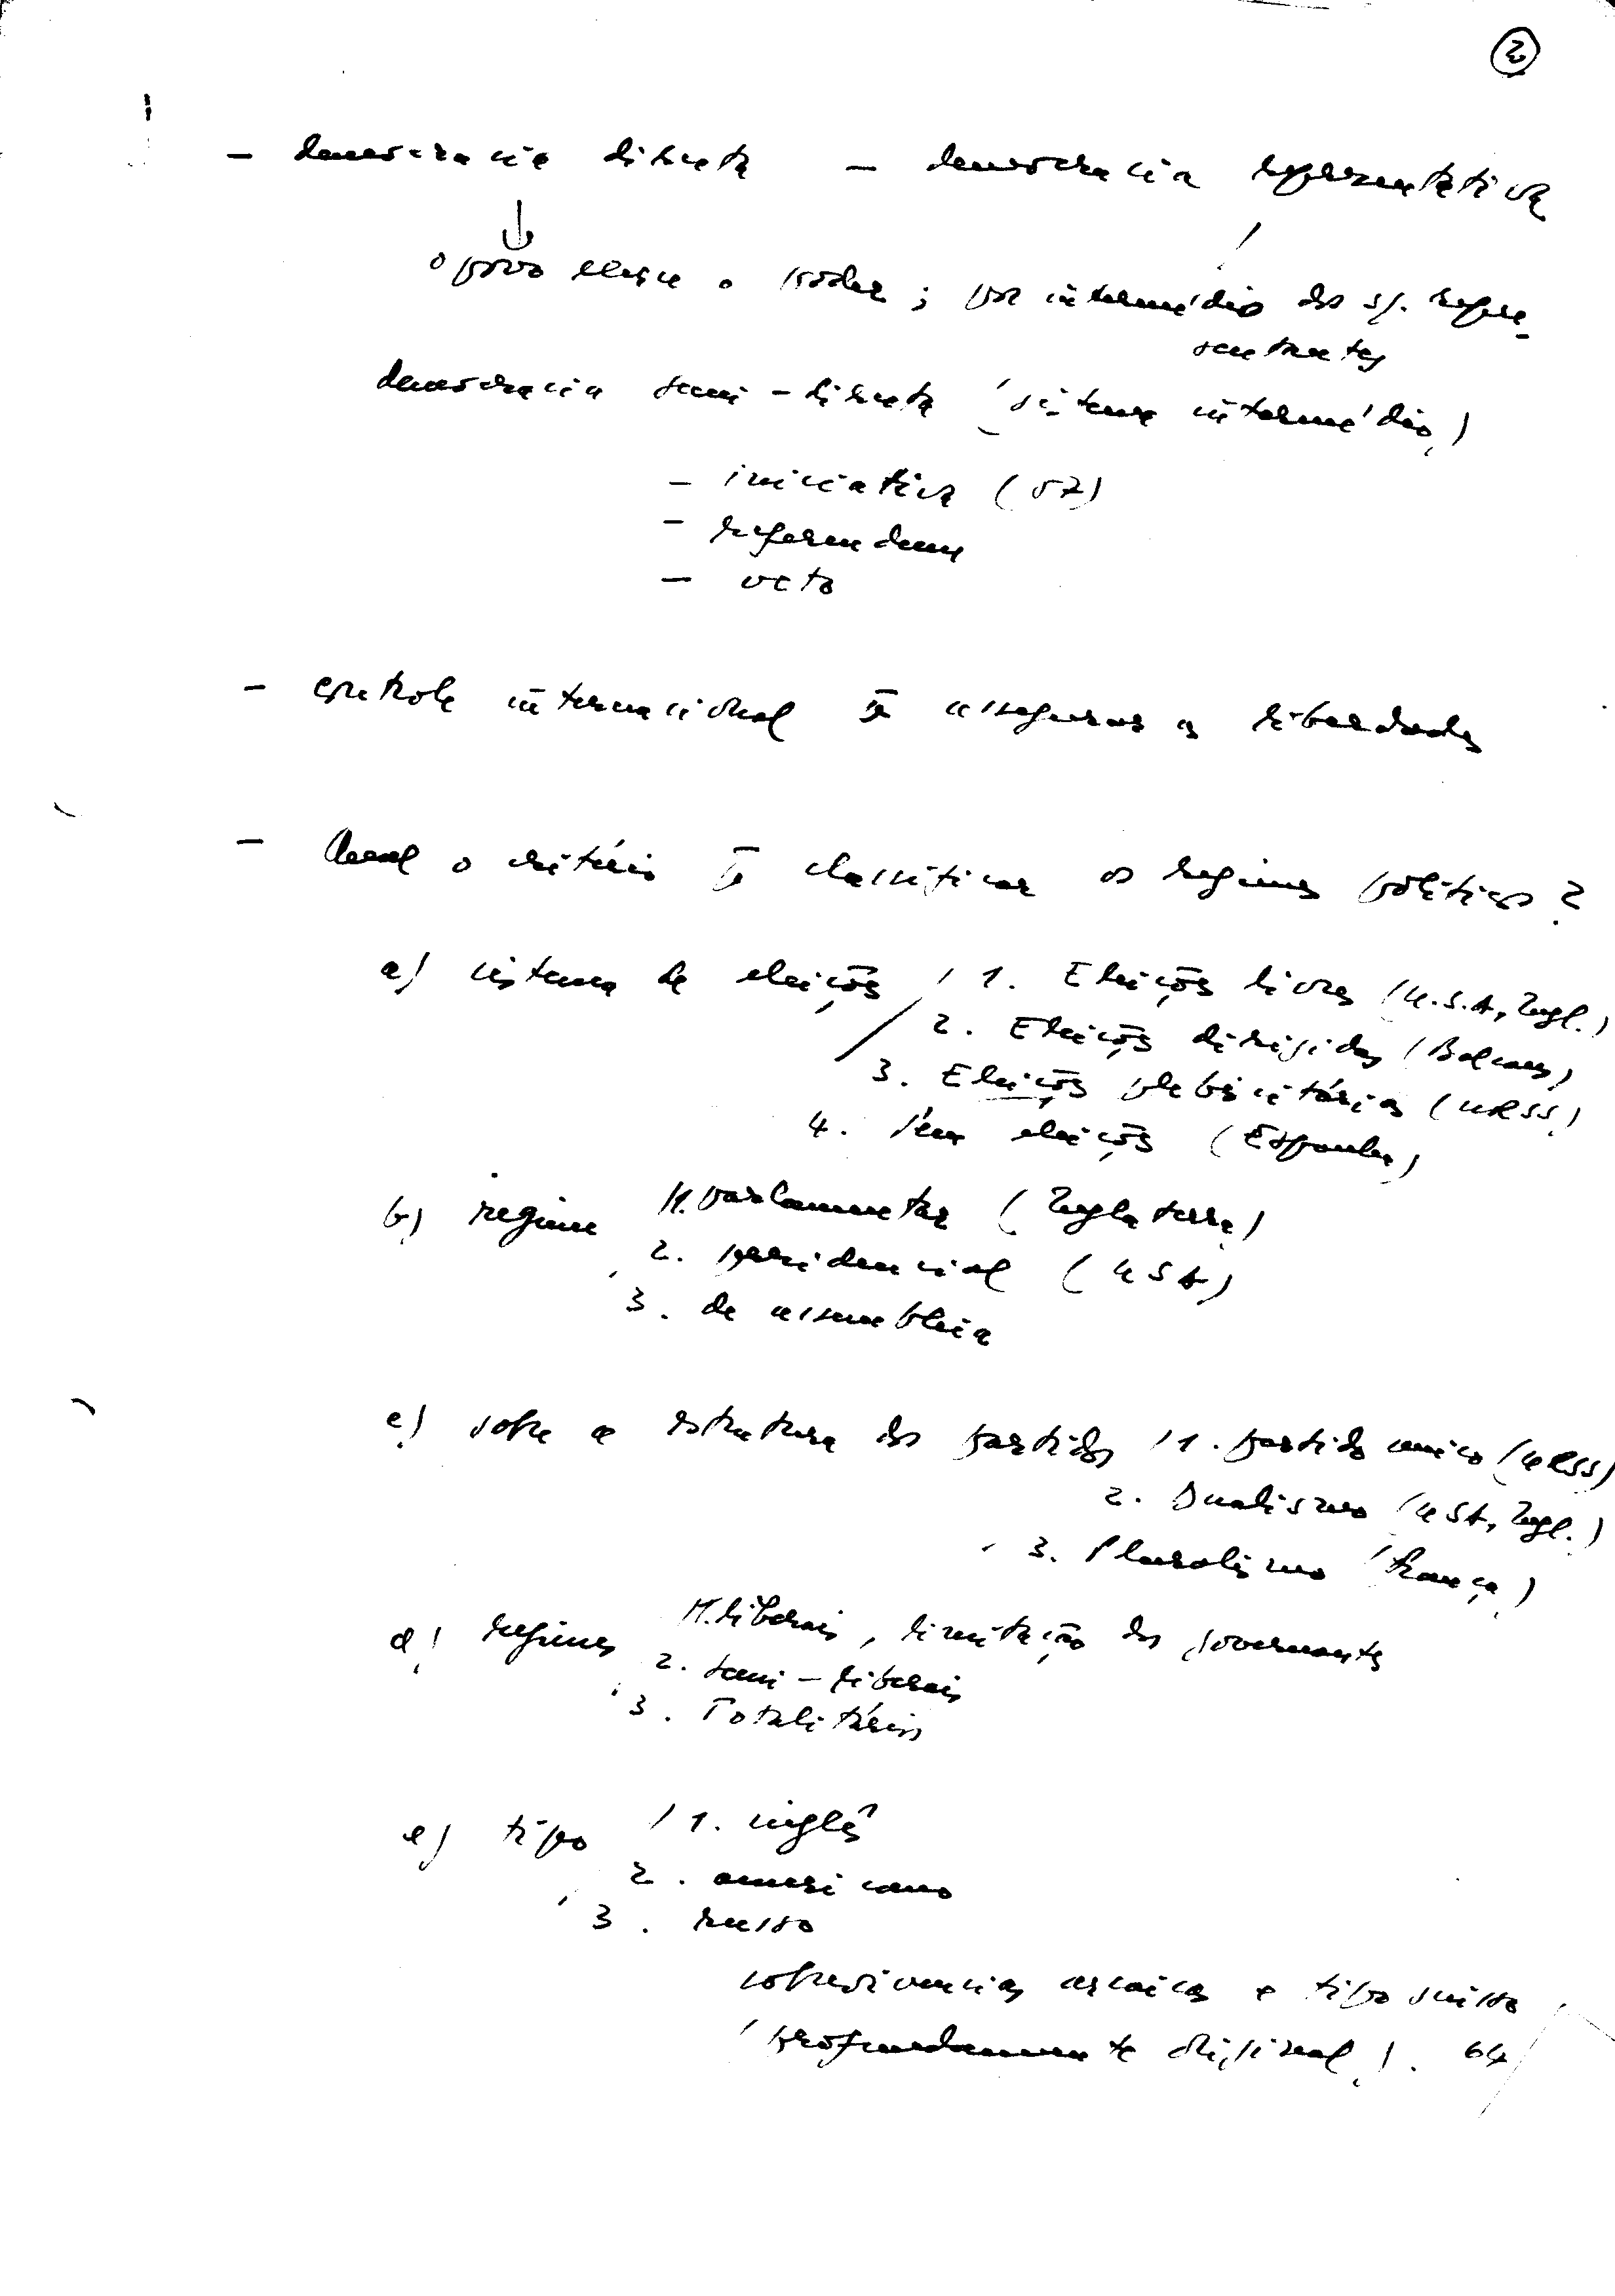 2
- democracia direta - democracia representativa
o povo exerce o poder ; por intermédio dos s/. repre-
sentantes
democracia semi-direta (sistema intermédio)
- iniciativa (57)
- referendum
- veto
- controle internacional p̄ assegurar as liberdades
- Qual o critério p̄ classificar os regimes políticos?
a) sistema de eleições / 1. Eleições livres (U.S.A, Ingl.)
2. Eleições dirigidas (Balcans)
3. Eleições plebiscitárias (URSS)
4. Sem eleições (Espanha)
b) regime / 1. parlamentar (Inglaterra)
2. presidencial (USA)
3. de assembléia
c) sobre a estrutura dos partidos / 1. partido único (URSS)
2. Dualismo (USA, Ingl.)
3. Pluralismo (França)
d) regimes / 1. liberais, limitação dos governantes
2. semi-liberais
3. Totalitários
e) tipo / 1. inglês
2. americano
3. russo
sobrevivencias arcaicas e tipo suisso
(profundamente original). 64